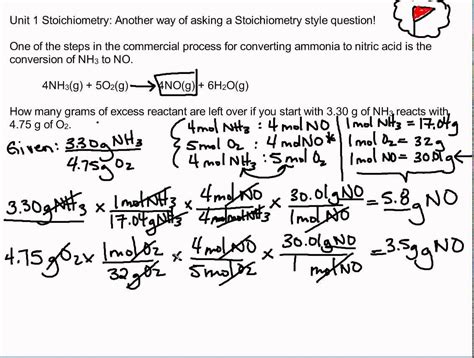 Unit 1 Stoichiometry: Another way of asking a Stoichiometry style question!
One of the steps in the commercial process for converting ammonia to nitric acid is the
conversion of NH₃ to NO.
4NH₃(g) + 5O₂(g) → 4NO(g) + 6H₂O(g)
How many grams of excess reactant are left over if you start with 3.30 g of NH₃ reacts with
4.75 g of O₂.
Given: 3.30g NH₃
4.75g O₂
4 mol NH₃ : 4 mol NO
5 mol O₂ : 4 mol NO*
4 mol NH₃ : 5 mol O₂
1 mol NH₃ = 17.04g
1 mol O₂ = 32g
1 mol NO = 30.01g ←
3.30g NH₃ × 1 mol NH₃ / 17.04g NH₃ × 4 mol NO / 4 mol NH₃ × 30.01g NO / 1 mol NO = 5.8g NO
4.75g O₂ × 1 mol O₂ / 32g O₂ × 4 mol NO / 5 mol O₂ × 30.01g NO / 1 mol NO = 3.5g NO